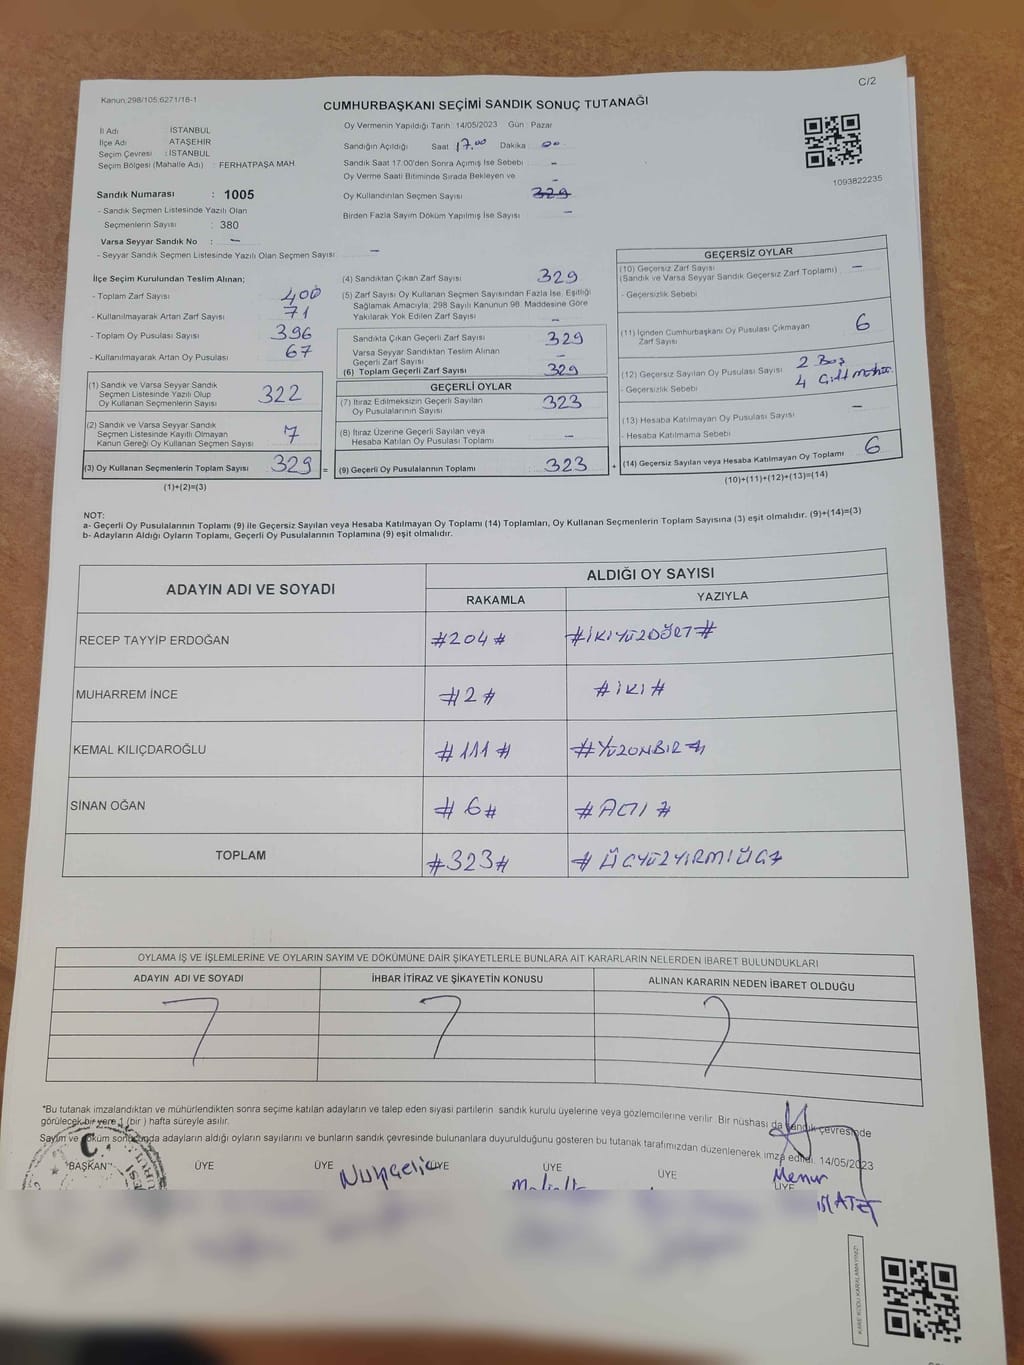 C/2
Kanun:298/105;6271/16-1
CUMHURBAŞKANI SEÇİMİ SANDIK SONUÇ TUTANAĞI
İl Adı : İSTANBUL
İlçe Adı : ATAŞEHİR
Seçim Çevresi : İSTANBUL
Seçim Bölgesi (Mahalle Adı) : FERHATPAŞA MAH
Oy Vermenin Yapıldığı Tarih :14/05/2023 Gün : Pazar
Sandığın Açıldığı Saat 17.00 Dakika 00
Sandık Saat 17:00'den Sonra Açımış İse Sebebi –
Oy Verme Saati Bitiminde Sırada Bekleyen ve –
Oy Kullandırılan Seçmen Sayısı 329
Birden Fazla Sayım Döküm Yapılmış İse Sayısı –
1093822235
Sandık Numarası : 1005
- Sandık Seçmen Listesinde Yazılı Olan
Seçmenlerin Sayısı : 380
Varsa Seyyar Sandık No : –
- Seyyar Sandık Seçmen Listesinde Yazılı Olan Seçmen Sayısı: –
İlçe Seçim Kurulundan Teslim Alınan;
- Toplam Zarf Sayısı 400
- Kullanılmayarak Artan Zarf Sayısı 71
- Toplam Oy Pusulası Sayısı 396
- Kullanılmayarak Artan Oy Pusulası 67
(1) Sandık ve Varsa Seyyar Sandık
Seçmen Listesinde Yazılı Olup
Oy Kullanan Seçmenlerin Sayısı 322
(2) Sandık ve Varsa Seyyar Sandık
Seçmen Listesinde Kayıtlı Olmayan
Kanun Gereği Oy Kullanan Seçmen Sayısı 7
(3) Oy Kullanan Seçmenlerin Toplam Sayısı 329 =
(1)+(2)=(3)
(4) Sandıktan Çıkan Zarf Sayısı 329
(5) Zarf Sayısı Oy Kullanan Seçmen Sayısından Fazla İse, Eşitliği
Sağlamak Amacıyla; 298 Sayılı Kanunun 98. Maddesine Göre
Yakılarak Yok Edilen Zarf Sayısı –
Sandıkta Çıkan Geçerli Zarf Sayısı 329
Varsa Seyyar Sandıktan Teslim Alınan
Geçerli Zarf Sayısı –
(6) Toplam Geçerli Zarf Sayısı 329
GEÇERLİ OYLAR
(7) İtiraz Edilmeksizin Geçerli Sayılan
Oy Pusulasının Sayısı 323
(8) İtiraz Üzerine Geçerli Sayılan veya
Hesaba Katılan Oy Pusulası Toplamı –
(9) Geçerli Oy Pusulalarının Toplamı 323 +
GEÇERSİZ OYLAR
(10) Geçersiz Zarf Sayısı
(Sandık ve Varsa Seyyar Sandık Geçersiz Zarf Toplamı) –
- Geçersizlik Sebebi
(11) İçinden Cumhurbaşkanı Oy Pusulası Çıkmayan
Zarf Sayısı 6
(12) Geçersiz Sayılan Oy Pusulası Sayısı 2 Boş
- Geçersizlik Sebebi 4 Çift
(13) Hesaba Katılmayan Oy Pusulası Sayısı –
- Hesaba Katılmama Sebebi
(14) Geçersiz Sayılan veya Hesaba Katılmayan Oy Toplamı 6
(10)+(11)+(12)+(13)=(14)
NOT:
a- Geçerli Oy Pusulalarının Toplamı (9) ile Geçersiz Sayılan veya Hesaba Katılmayan Oy Toplamı (14) Toplamları, Oy Kullanan Seçmenlerin Toplam Sayısına (3) eşit olmalıdır. (9)+(14)=(3)
b- Adayların Aldığı Oyların Toplamı, Geçerli Oy Pusulalarının Toplamına (9) eşit olmalıdır.
ADAYIN ADI VE SOYADI
ALDIĞI OY SAYISI
RAKAMLA YAZIYLA
RECEP TAYYİP ERDOĞAN #204# #İKİYÜZDÖRT#
MUHARREM İNCE #2# #İKİ#
KEMAL KILIÇDAROĞLU #111# #YÜZONBİR#
SİNAN OĞAN #6# #ALTI#
TOPLAM #323# #ÜÇYÜZYİRMİÜÇ#
OYLAMA İŞ VE İŞLEMLERİNE VE OYLARIN SAYIM VE DÖKÜMÜNE DAİR ŞİKAYETLERLE BUNLARA AİT KARARLARIN NELERDEN İBARET BULUNDUKLARI
ADAYIN ADI VE SOYADI İHBAR İTİRAZ VE ŞİKAYETİN KONUSU ALINAN KARARIN NEDEN İBARET OLDUĞU
*Bu tutanak imzalandıktan ve mühürlendikten sonra seçime katılan adayların ve talep eden siyasi partilerin sandık kurulu üyelerine veya gözlemcilerine verilir. Bir nüshası da sandık çevresinde
görülecek bir yere 1 (bir ) hafta süreyle asılır.
Sayım ve döküm sonucunda adayların aldığı oyların sayılarını ve bunların sandık çevresinde bulunanlara duyurulduğunu gösteren bu tutanak tarafımızdan düzenlenerek imza edildi. 14/05/2023
BAŞKAN ÜYE ÜYE ÜYE ÜYE ÜYE ÜYE
KARE KODU KARALAMAYINIZ!